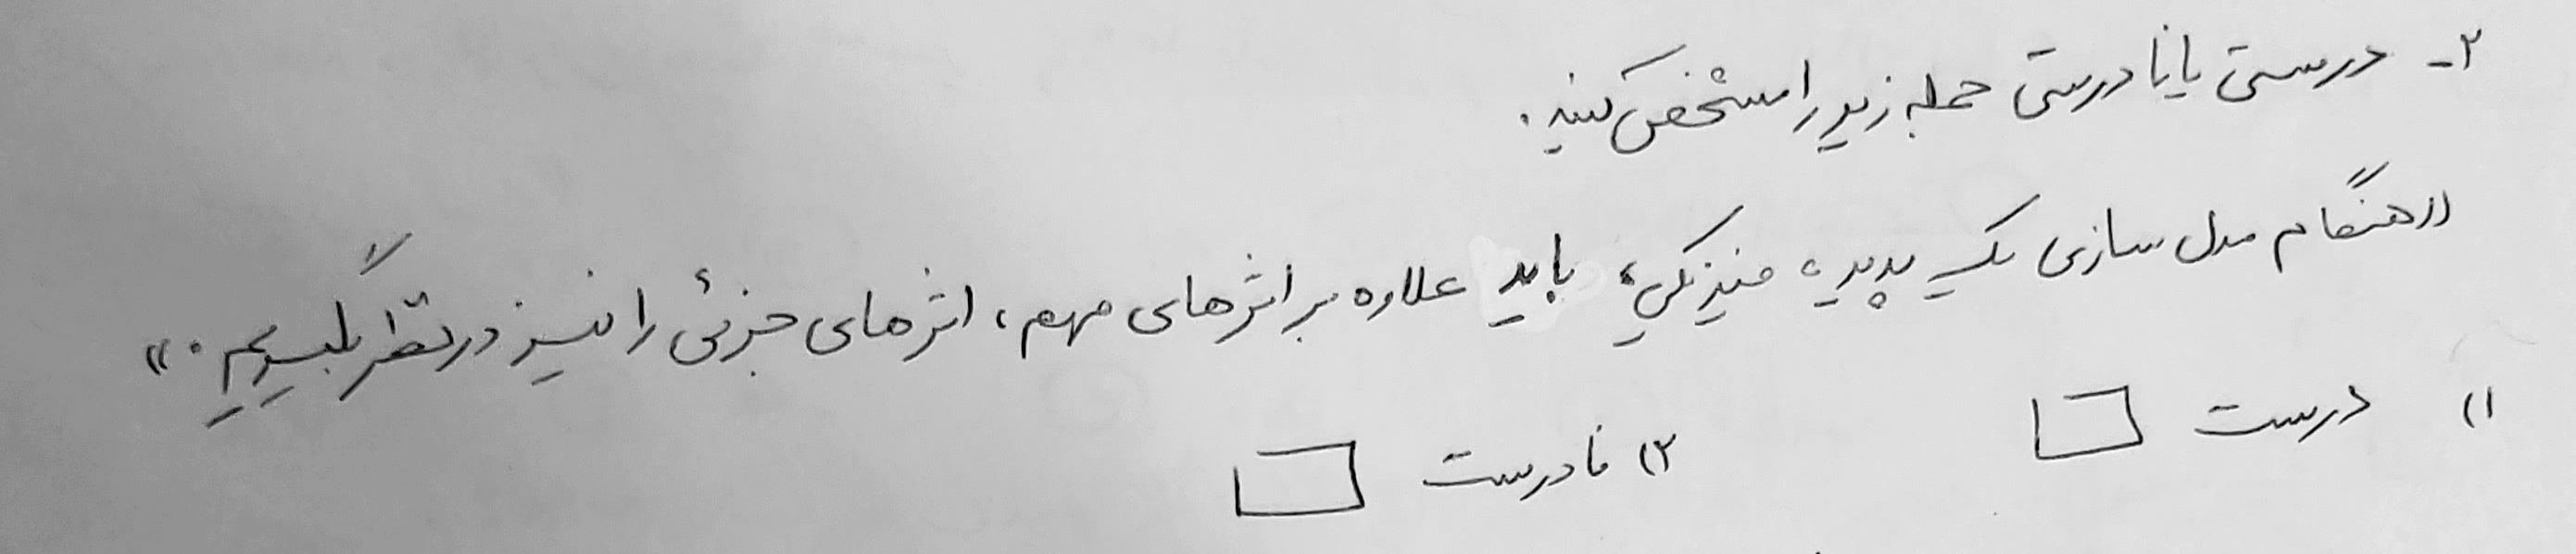 ۲- درستی یا نادرستی جمله زیر را مشخص کنید.
«هنگام مدل سازی یک پدیده فیزیکی، باید علاوه بر اثرهای مهم، اثرهای جزئی را نیز در نظر بگیریم.»
۱) درست
۲) نادرست